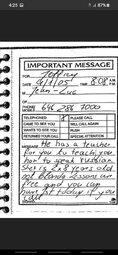 4:25
87%
IMPORTANT MESSAGE
FOR Jeffrey
DATE 9/1/05 TIME 8:08 A.M. P.M.
M Jean-Luc
OF
PHONE
MOBILE 646 286 7000
TELEPHONED X PLEASE CALL
CAME TO SEE YOU WILL CALL AGAIN
WANTS TO SEE YOU RUSH
RETURNED YOUR CALL SPECIAL ATTENTION
MESSAGE He has a teacher
for you to teach you
how to speak Russian
She is 2x8 years old
not blonde Lessons are
free and you can
have 1st today if you
call